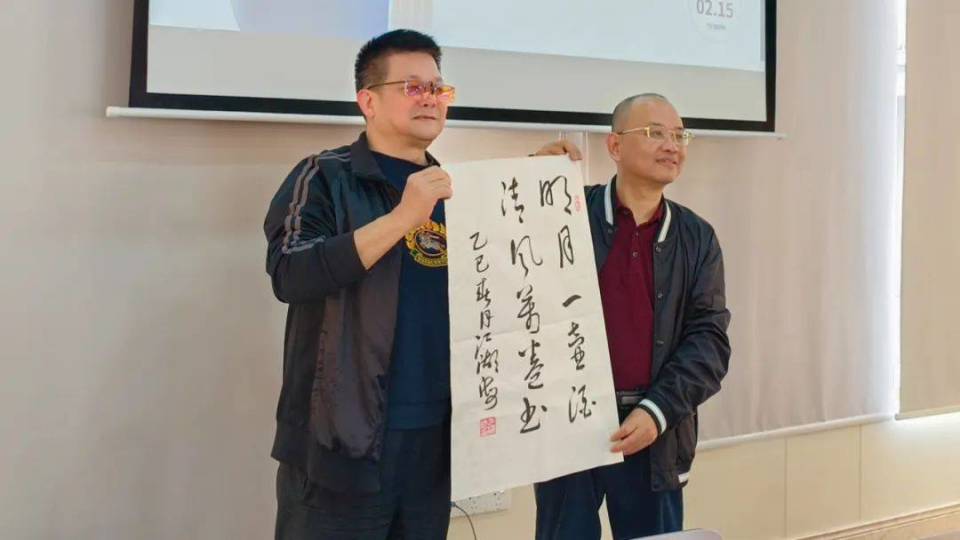 02.15
明月一壺酒
清风萬卷书
乙巳春月江湖